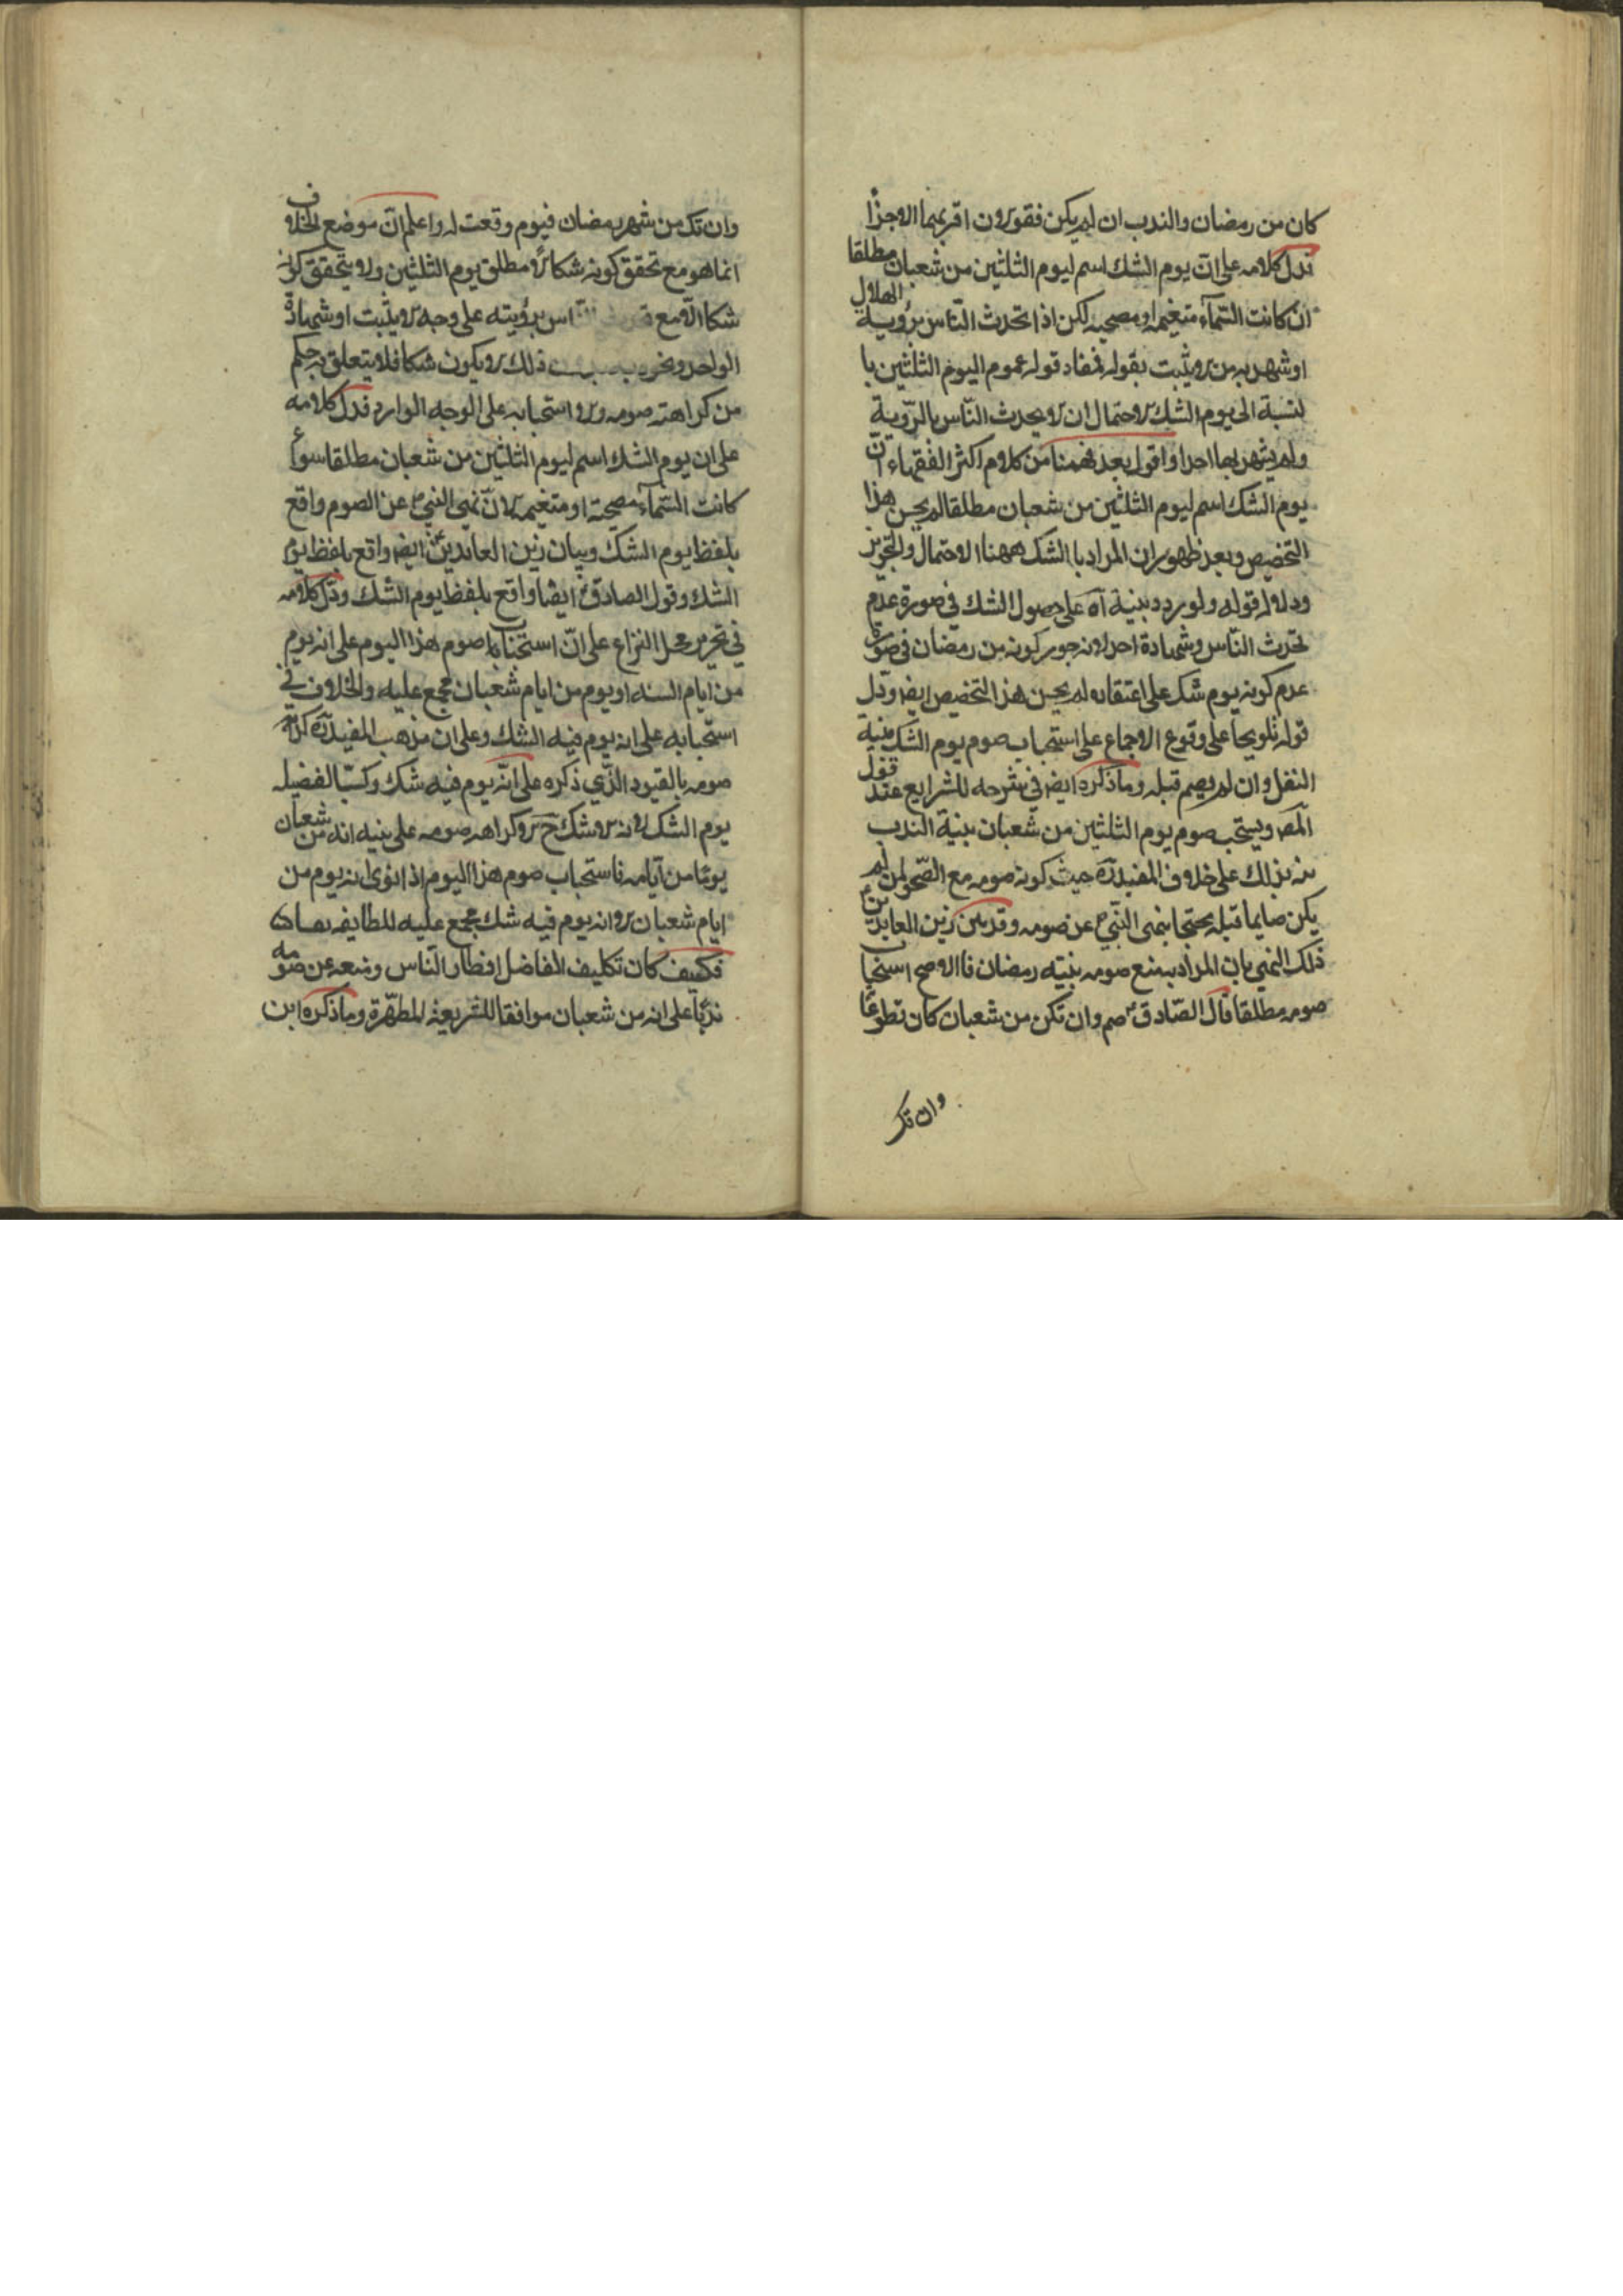 كان من رمضان والندب ان لم يكن فقولان اقربهما الاجزأ
فدل كلامه على ان يوم الشك اسم ليوم الثلثين من شعبان مطلقا
ان كانت السّمآء متغيمة او مصحية لكن اذا تحدث النّاس برؤية الهلال
او شهد به من لا يثبت بقوله فمفاد قوله عموم اليوم الثلثين با
لنسبة الى يوم الشك لاحتمال ان لا يحدث النّاس بالرّوية
ولم يشهد بها احد واقول بعد فهمنا من كلام اكثر الفقهاء انّ
يوم الشك اسم ليوم الثلثين من شعبان مطلقا لم يحسن هذا
التخصيص وبعد ظهور ان المراد با الشك ههنا الاحتمال والتجويز
ودلالة قوله ولو ردد بنية آه على حصول الشك في صورة عدم
تحدث النّاس وشهادة احد لانه جوز كونه من رمضان في صورة
عدم كونه يوم شك على اعتقاده لم يحسن هذا التخصيص ايضا ودل
قوله تلويحا على وقوع الاجماع على استحباب صوم يوم الشك بنية
النفل وان لم يصم قبله وما ذكره ايضا في شرحه للشرايع عند قول
المص ويستحب صوم يوم الثلثين من شعبان بنية الندب
نبه بذلك على خلاف المفيد ره حيث كره صومه مع الصّحو لمن لم
يكن صايما قبله محتجا بنهى النّبي عن صومه وقد بين زين العابدين
ذلك النهي بان المراد به منع صومه بنيته رمضان فالاصح استحباب
صومه مطلقا قال الصّادق صم وان تكن من شعبان كان تطوعًا
وان تك
وان تك من شهر رمضان فيوم وقعت له واعلم انّ موضع الخلاف
انما هو مع تحقق كونه شكا لا مطلق يوم الثلثين ولا يتحقق كونه
شكا الا مع النّاس برؤيته على وجه لا يثبت او شهادة
الواحد ونحوه ذلك لا يكون شكا فلا يتعلق به حكم
من كراهته صومه ولا استحبابه على الوجه الوارد فدل كلامه
على ان يوم الشك اسم ليوم الثلثين من شعبان مطلقا سواء
كانت السّماء مصحية او متغيمة لانّ نهي النبي عن الصوم واقع
بلفظ يوم الشك وبيان زين العابدين ايضا واقع بلفظ يوم
الشك وقول الصادق ايضا واقع بلفظ يوم الشك ودل كلامه
في تحرير محل النزاع على انّ استحباب صوم هذا اليوم على انه يوم
من ايام السنه او يوم من ايام شعبان مجمع عليه والخلاف في
استحبابه على انه يوم فيه الشك وعلى ان مذهب المفيد ره كراهة
صومه بالقيود الذّي ذكره على انّه يوم فيه شك وكسبًا لفضيله
يوم الشك لانه لا شك ح لا كراهه صومه على بنيه انه من شعبان
يومًا من أيامه فاستحباب صوم هذا اليوم اذا نوى انه يوم من
ايام شعبان لا انه يوم فيه شك مجمع عليه للطايفه
فكيف كان تكليف الفاضل افطار النّاس ومنعه عن صومه
ندبًا على انه من شعبان موافقا للشريعة المطهّرة وما ذكره ابن